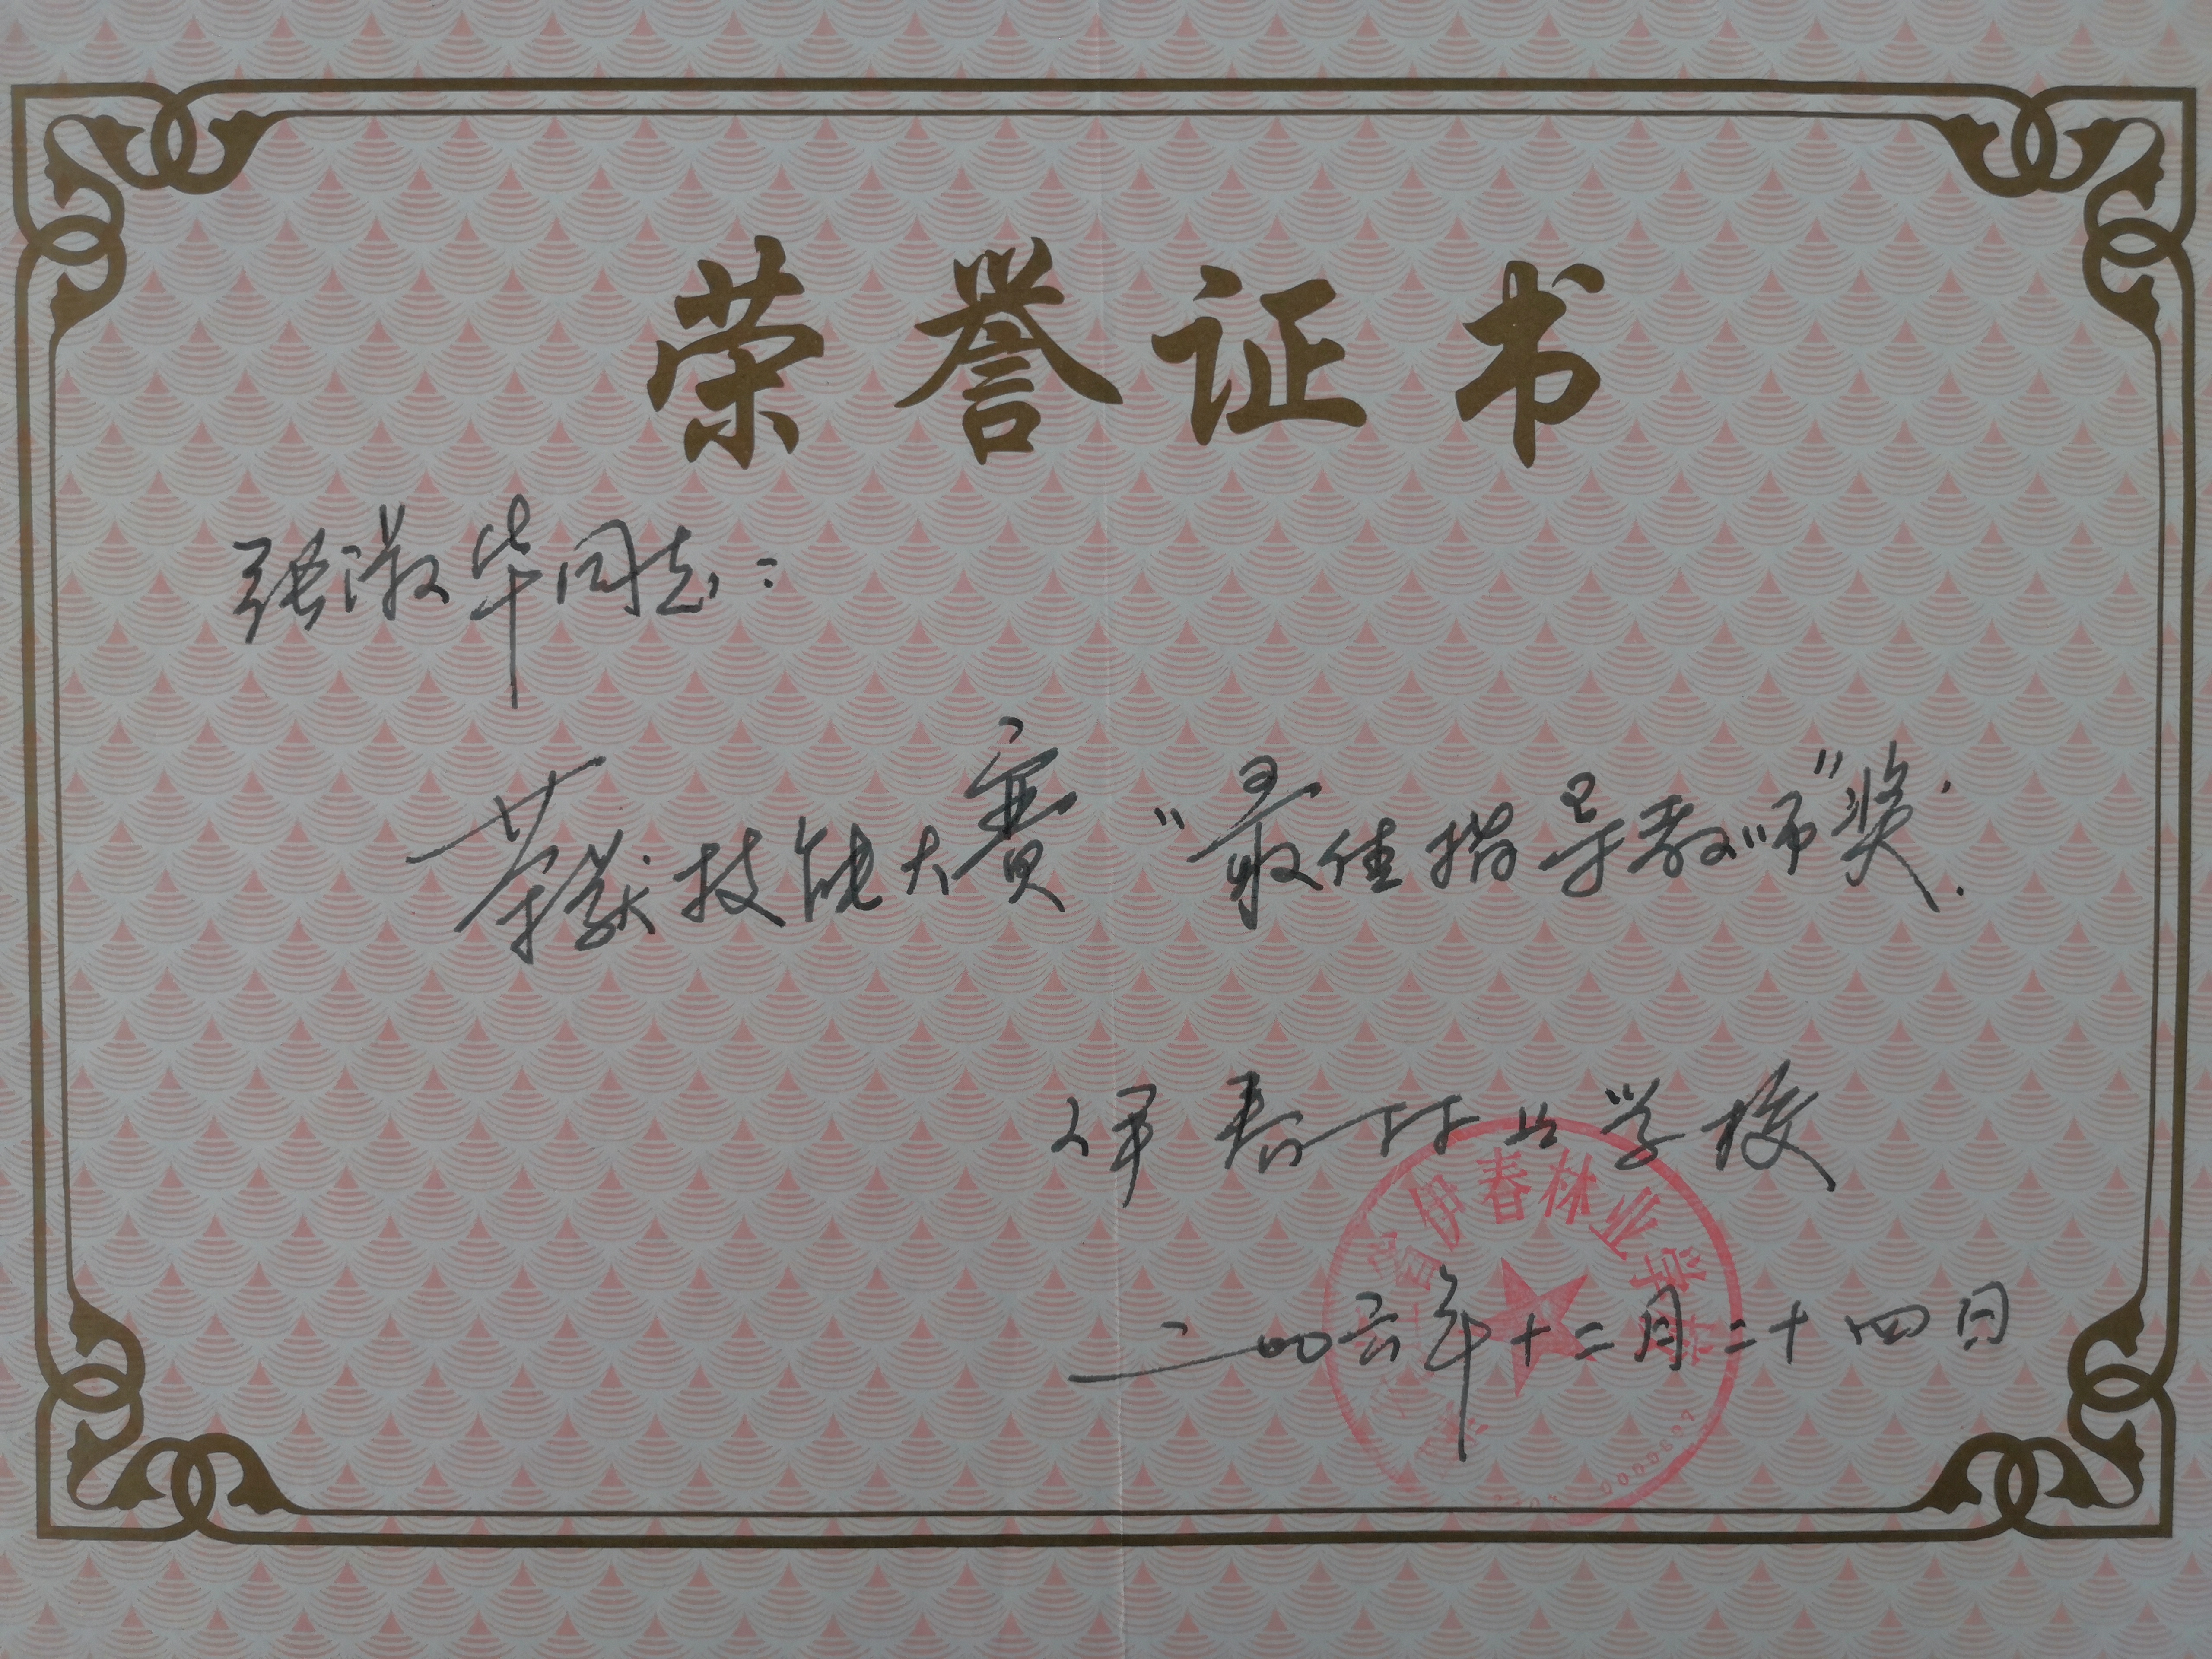 荣誉证书
张淑华同志：
荣获技能大赛“最佳指导教师”奖.
伊春林业学校
省伊春林业学校
二00六年十二月二十四日